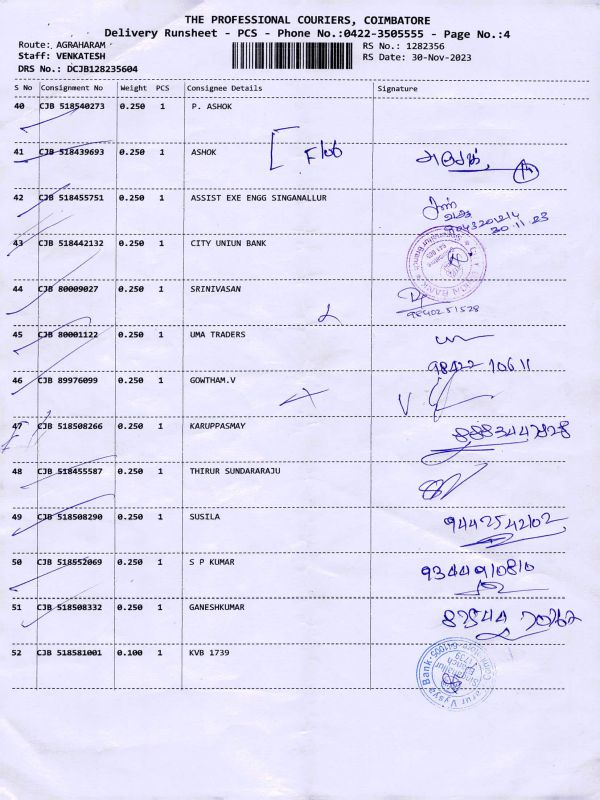 THE PROFESSIONAL COURIERS, COIMBATORE
Delivery Runsheet - PCS - Phone No.:0422-3505555 - Page No.:4
Route: AGRAHARAM RS No.: 1282356
Staff: VENKATESH RS Date: 30-Nov-2023
DRS No.: DCJB128235604
S No Consignment No Weight PCS Consignee Details Signature
40 CJB 518540273 0.250 1 P. ASHOK
41 CJB 518439693 0.250 1 ASHOK
42 CJB 518455751 0.250 1 ASSIST EXE ENGG SINGANALLUR
30.11.23
43 CJB 518442132 0.250 1 CITY UNIUN BANK
44 CJB 80009027 0.250 1 SRINIVASAN
9840251528
45 CJB 80001122 0.250 1 UMA TRADERS
98422 10611
46 CJB 89976099 0.250 1 GOWTHAM.V
47 CJB 518508266 0.250 1 KARUPPASMAY
48 CJB 518455587 0.250 1 THIRUR SUNDARARAJU
49 CJB 518508290 0.250 1 SUSILA 9442542102
50 CJB 518552069 0.250 1 S P KUMAR 9344910810
51 CJB 518508332 0.250 1 GANESHKUMAR
52 CJB 518581001 0.100 1 KVB 1739